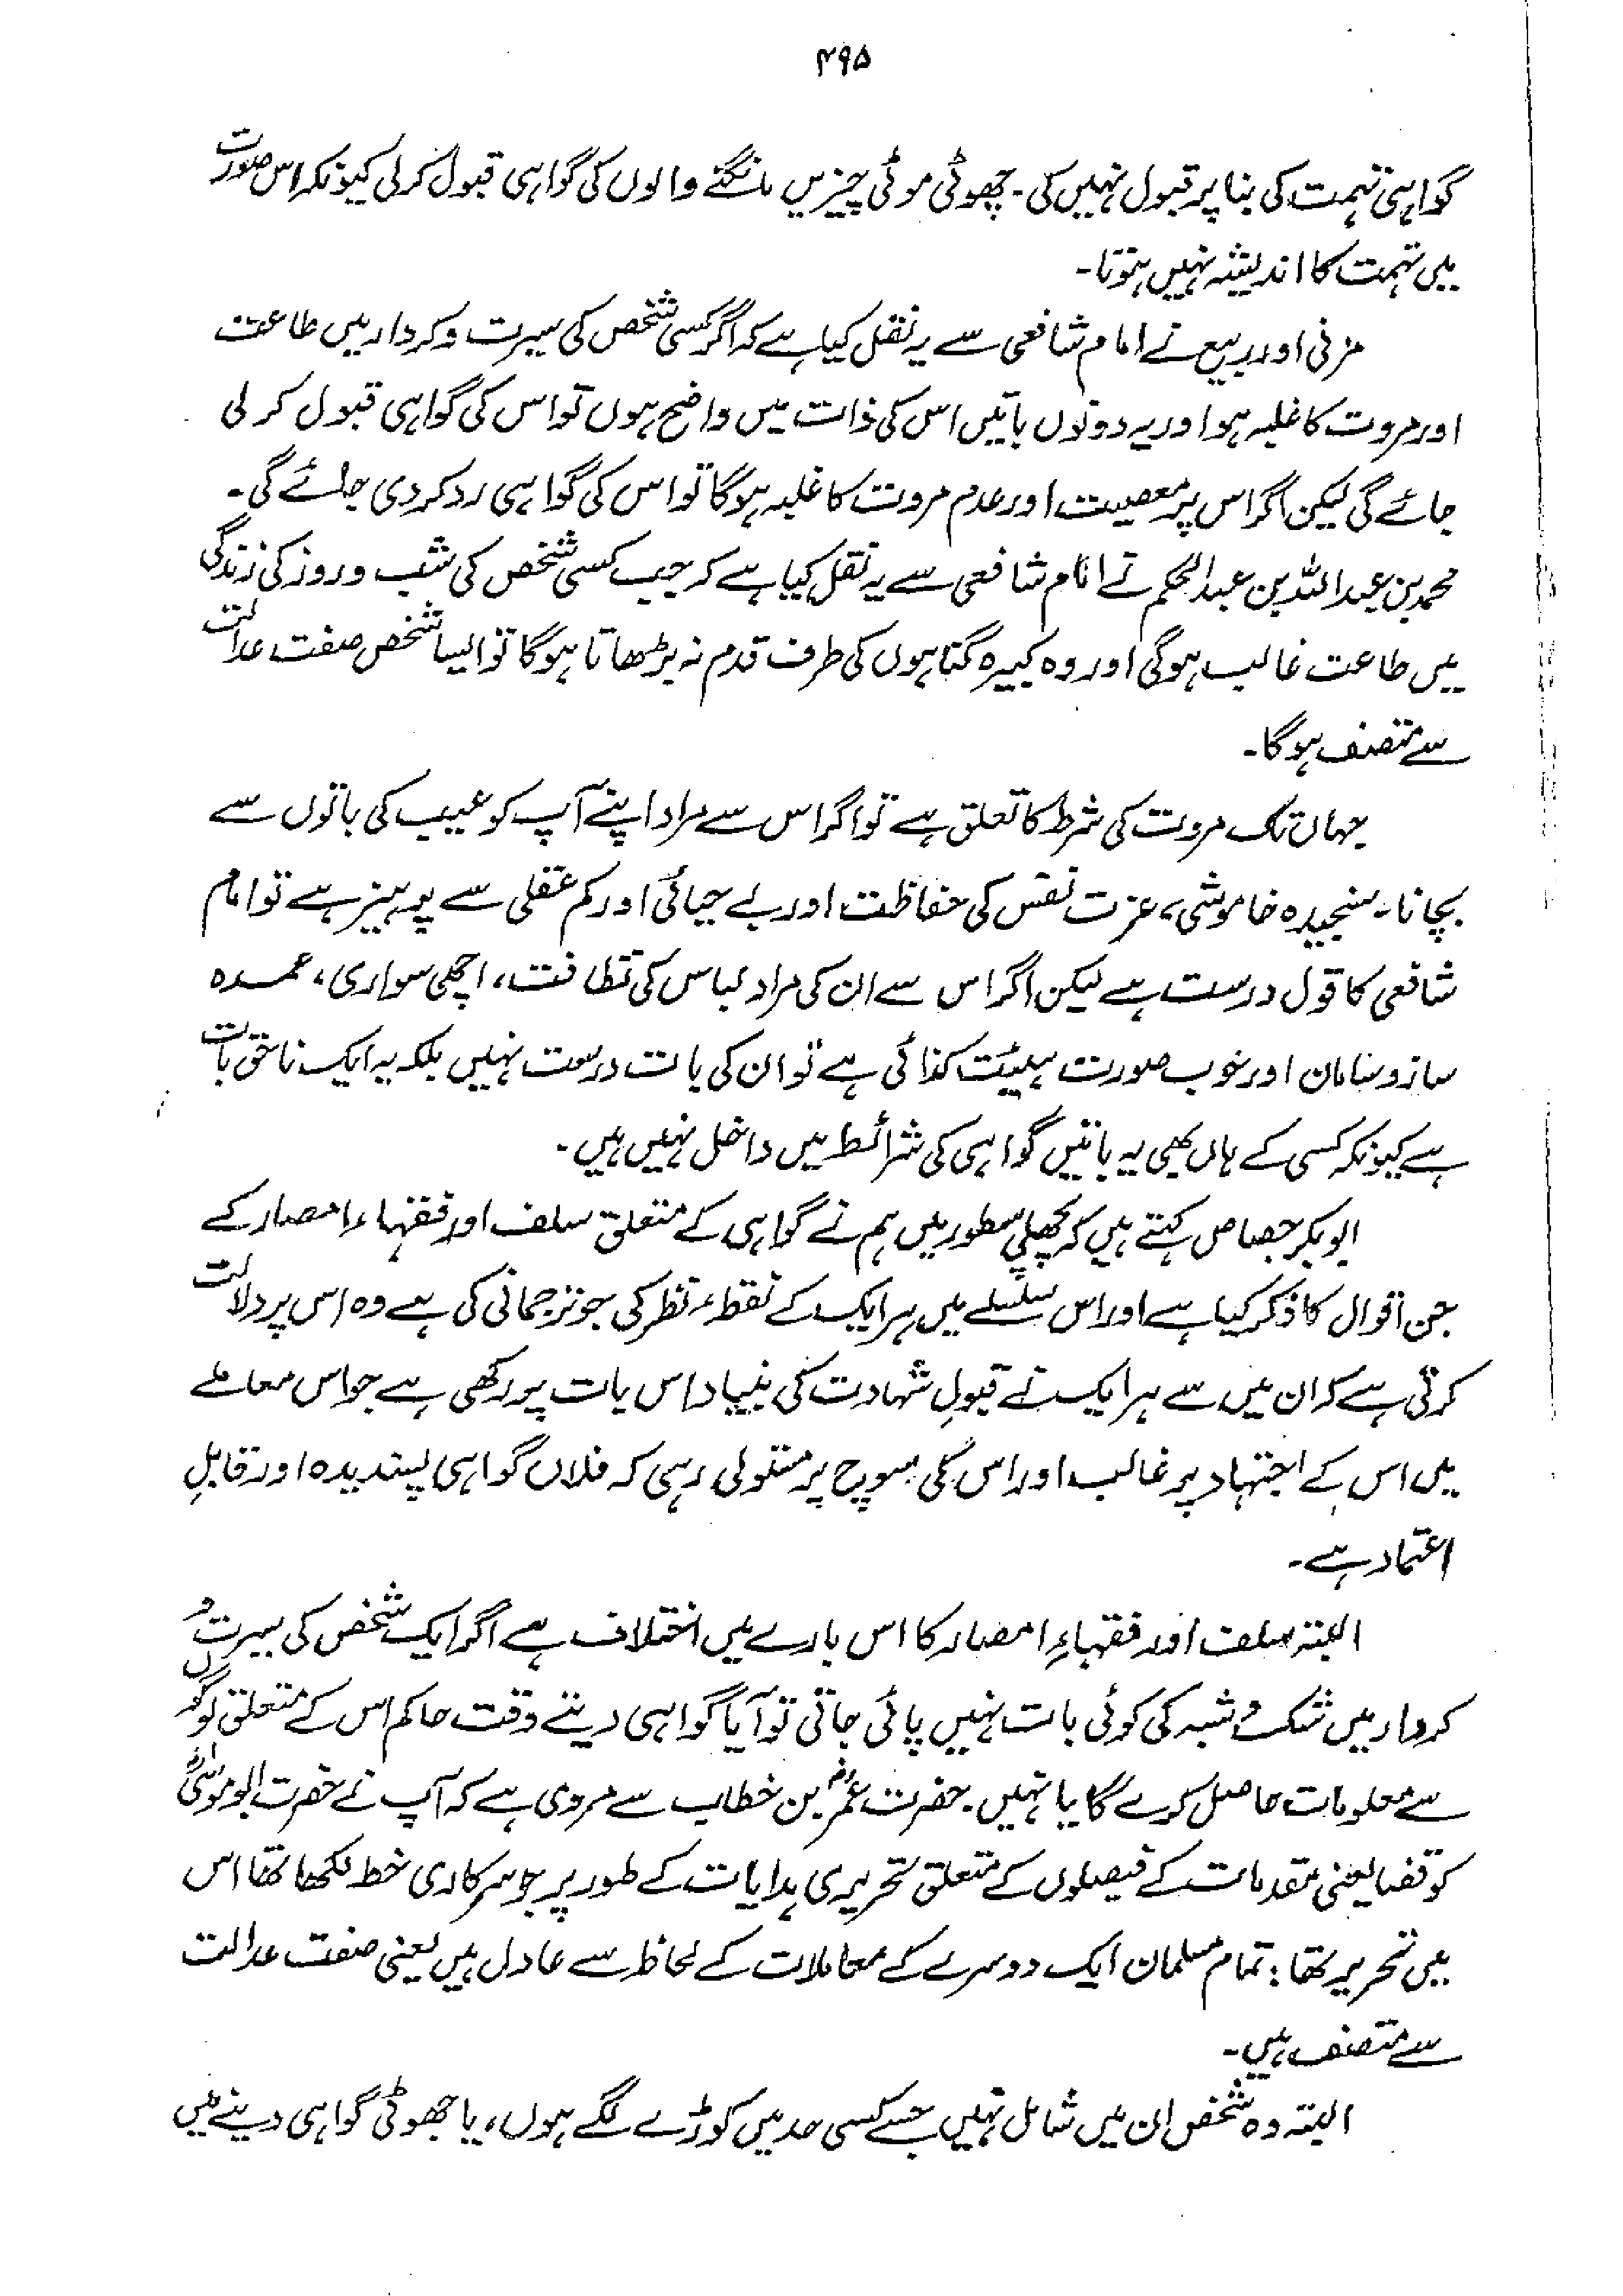 ۴۹۵
گواہی تہمت کی بنا پر قبول نہیں کی۔ چھوٹی موٹی چیزیں مانگنے والوں کی گواہی قبول کرلی کیونکہ اس صورت
میں تہمت کا اندیشہ نہیں ہوتا۔
مزنی اور ربیع نے امام شافعی سے یہ نقل کیا ہے کہ اگر کسی شخص کی سیرت و کردار میں طاعت
اور مروت کا غلبہ ہو اور یہ دونوں باتیں اس کی ذات میں واضح ہوں تو اس کی گواہی قبول کر لی
جائے گی لیکن اگر اس پر معصیت اور عدم مروت کا غلبہ ہوگا تو اس کی گواہی رد کر دی جائے گی۔
محمد بن عبداللہ بن عبدالحکم نے امام شافعی سے یہ نقل کیا ہے کہ جب کسی شخص کی شب و روز کی زندگی
میں طاعت غالب ہوگی اور وہ کبیرہ گناہوں کی طرف قدم نہ بڑھاتا ہوگا تو ایسا شخص صفت عدالت
سے متصف ہوگا۔
جہاں تک مروت کی شرط کا تعلق ہے تو اگر اس سے مراد اپنے آپ کو عیب کی باتوں سے
بچانا، سنجیدہ خاموشی، عزت نفس کی حفاظت اور بے حیائی اور کم عقلی سے پرہیز ہے تو امام
شافعی کا قول درست ہے لیکن اگر اس سے ان کی مراد لباس کی نظافت، اچھی سواری، عمدہ
سازوسامان اور خوب صورت ہیئت کذائی ہے تو ان کی بات درست نہیں بلکہ یہ ایک ناحق بات
ہے کیونکہ کسی کے ہاں بھی یہ باتیں گواہی کی شرائط میں داخل نہیں ہیں۔
ابوبکر جصاص کہتے ہیں کہ پچھلی سطور میں ہم نے گواہی کے متعلق سلف اور فقہاء امصار کے
جن اقوال کا ذکر کیا ہے اور اس سلسلے میں ہر ایک کے نقطۂ نظر کی جو ترجمانی کی ہے وہ اس پر دلالت
کرتی ہے کہ ان میں سے ہر ایک نے قبولِ شہادت کی بنیاد اس بات پر رکھی ہے جو اس معاملے
میں اس کے اجتہاد پر غالب اور اس کی سوچ پر مستولی رہی کہ فلاں گواہی پسندیدہ اور قابلِ
اعتماد ہے۔
البتہ سلف اور فقہاءِ امصار کا اس بارے میں اختلاف ہے اگر ایک شخص کی سیرت و
کردار میں شک و شبہ کی کوئی بات نہیں پائی جاتی تو آیا گواہی دیتے وقت حاکم اس کے متعلق لوگوں
سے معلومات حاصل کرے گا یا نہیں۔ حضرت عمرؓ بن خطاب سے مروی ہے کہ آپ نے حضرت ابوموسیٰؓ
کو قضا یعنی مقدمات کے فیصلوں کے متعلق تحریری ہدایات کے طور پر جو سرکاری خط لکھا تھا اس
میں تحریر تھا: تمام مسلمان ایک دوسرے کے معاملات کے لحاظ سے عادل ہیں یعنی صفت عدالت
سے متصف ہیں۔
البتہ وہ شخص ان میں شامل نہیں جسے کسی حد میں کوڑے لگے ہوں، یا جھوٹی گواہی دینے میں